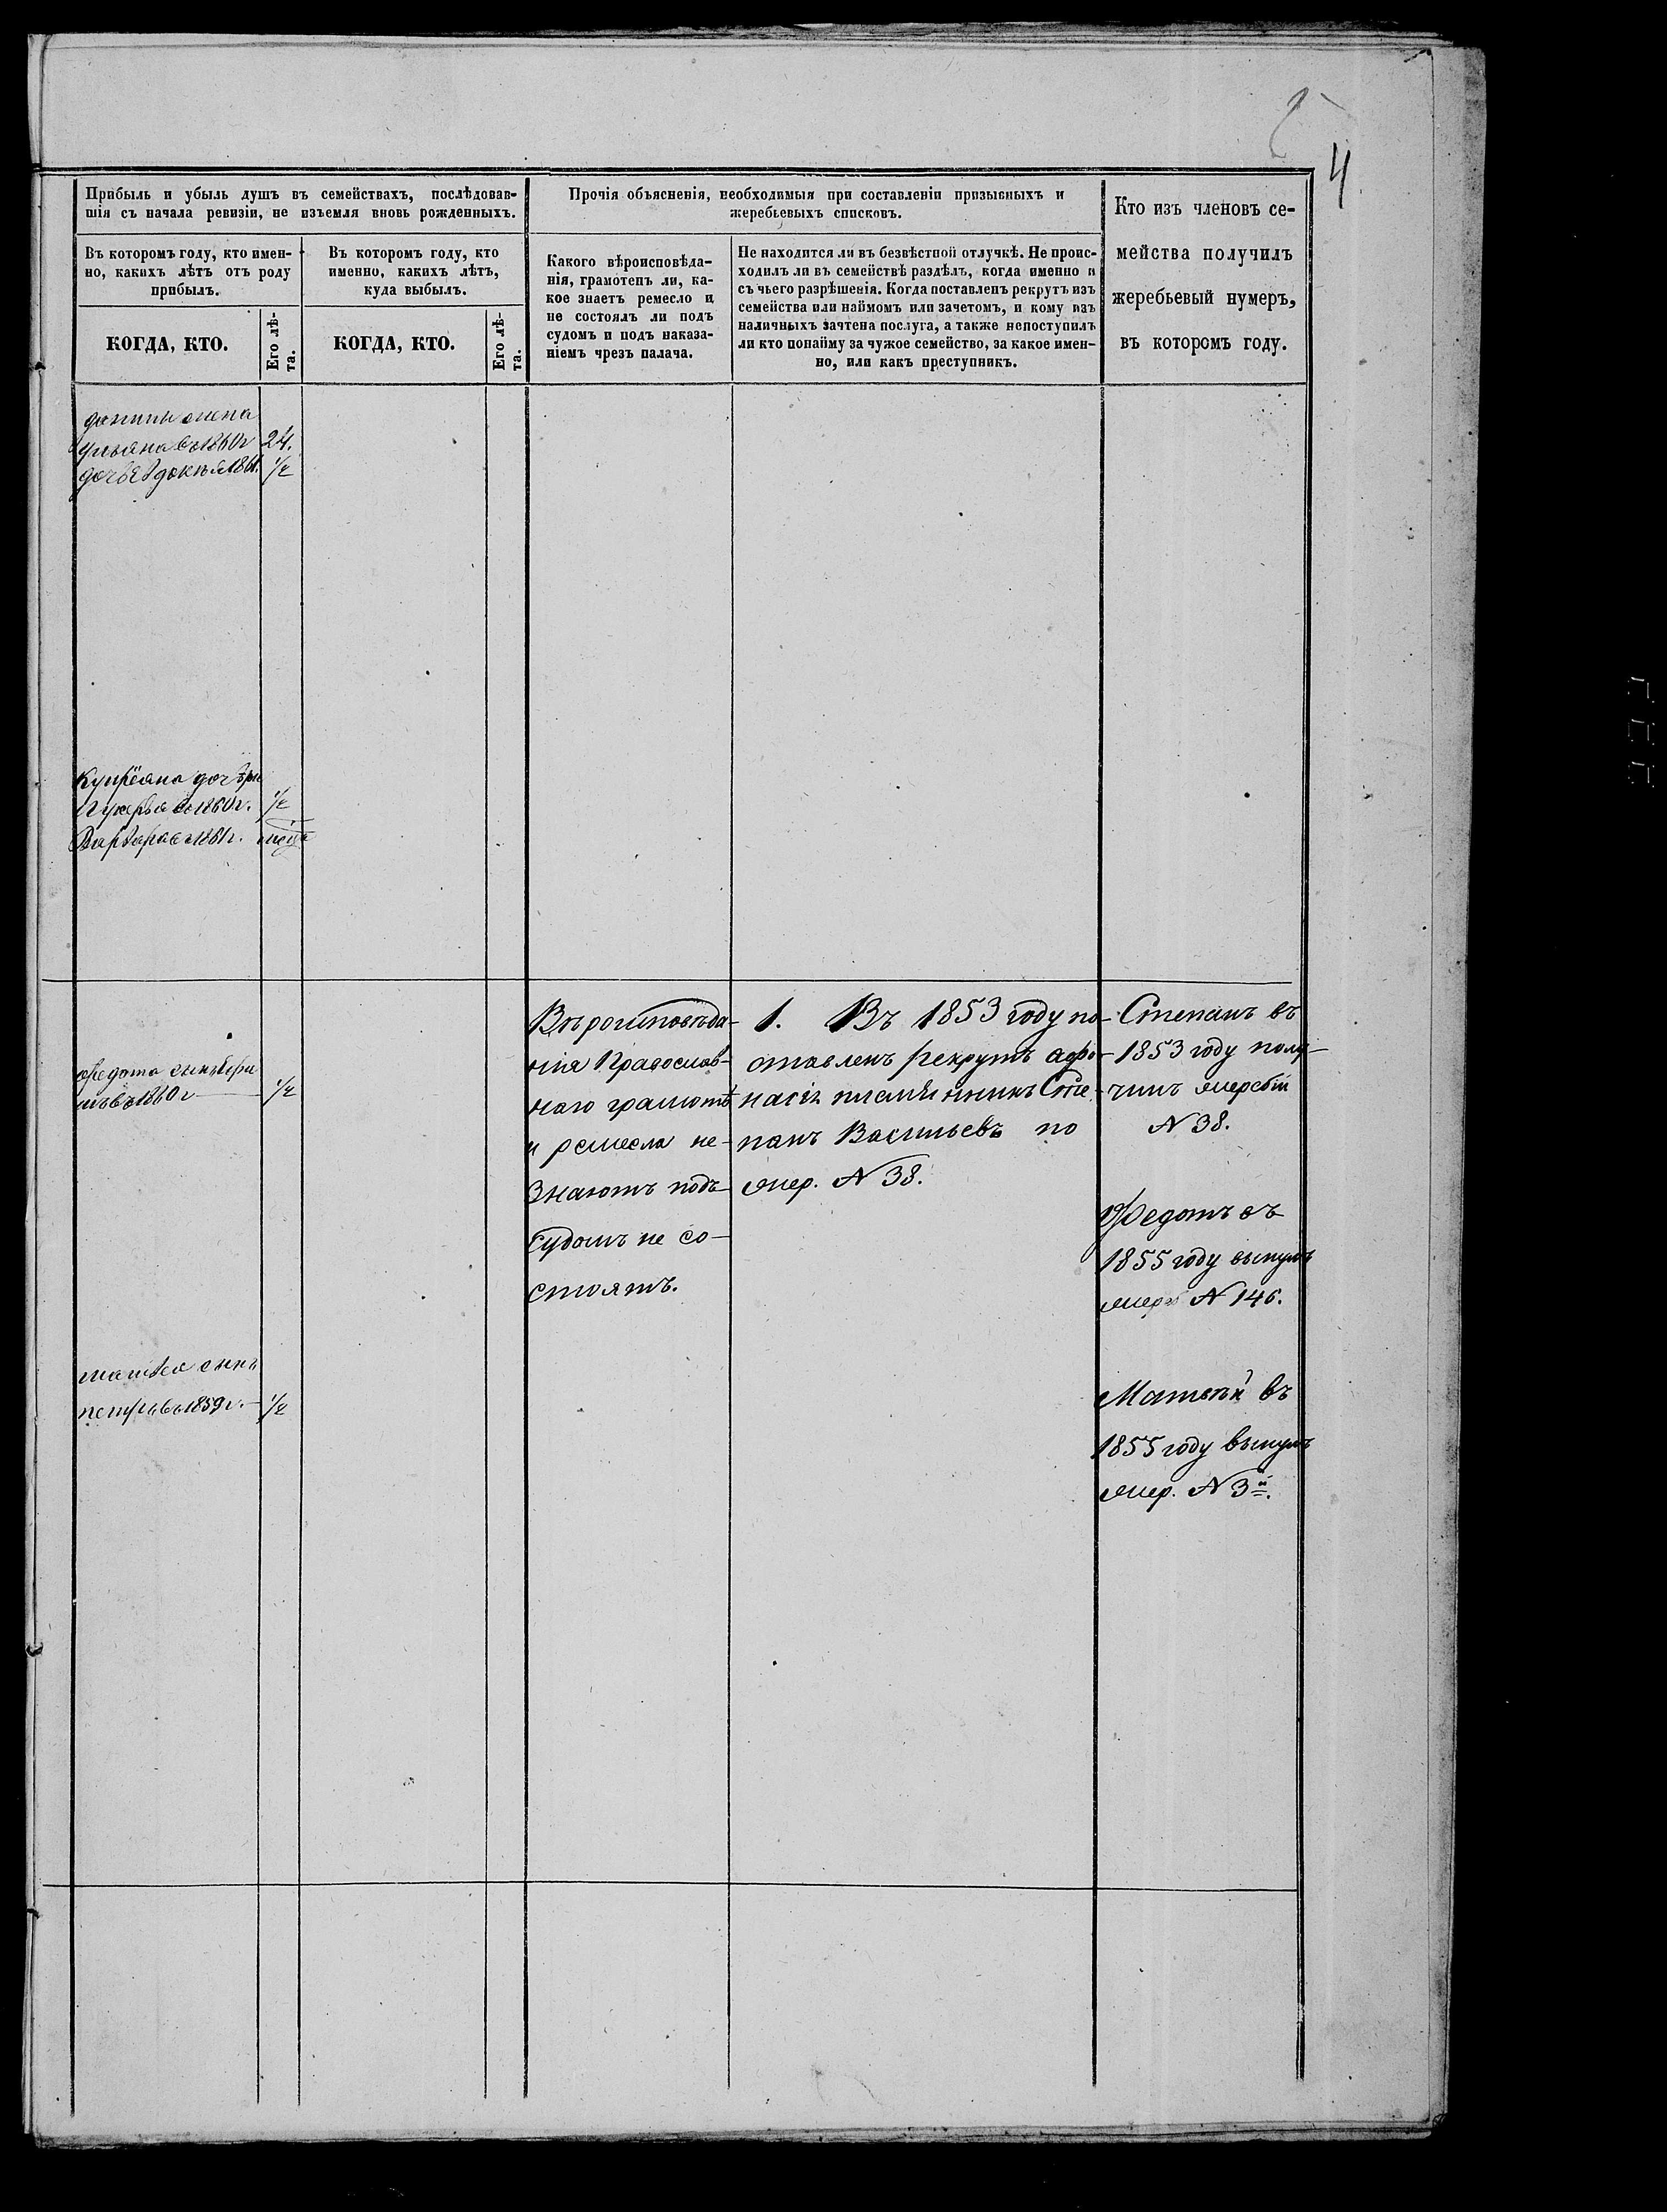 4
Прибыль и убыль душъ въ семействахъ, послѣдовав-
шія съ начала ревизіи, не изъемля вновь рожденныхъ.
Прочія объясненія, необходимыя при составленіи призывныхъ и
жеребьевыхъ списковъ.
Кто изъ членовъ се-
мейства получилъ
жеребьевый нумеръ,
въ которомъ году.
Въ которомъ году, кто имен-
но, какихъ лѣтъ отъ роду
прибылъ.
Въ которомъ году, кто
именно, какихъ лѣтъ,
куда выбылъ.
Какого вѣроисповѣда-
нія, грамотенъ ли, ка-
кое знаетъ ремесло и
не состоялъ ли подъ
судомъ и подъ наказа-
ніемъ чрезъ палача.
Не находится ли въ безвѣстной отлучкѣ. Не проис-
ходилъ ли въ семействѣ раздѣлъ, когда именно и
съ чьего разрѣшенія. Когда поставленъ рекрутъ изъ
семейства или наймомъ или зачетомъ, и кому изъ
наличныхъ зачтена послуга, а также непоступилъ
ли кто понайму за чужое семейство, за какое имен-
но, или какъ преступникъ.
КОГДА, КТО.
Его лѣ-
та.
КОГДА, КТО.
Его лѣ-
та.
жена
ульяна въ 1860 г 24.
дочь Евдокия 1861. 1/2
Купрёяна дочъри
въ 1860 г. 1/2
Варвара въ 1861 г.
федота сынъ
въ 1860 г 1/2
матвея сынъ
петръ въ 1859 г. 1/2
Вѣроисповѣда-
нія Православ-
наго грамотѣ
и ремесла не-
знаютъ подъ
судомъ не со-
стоятъ.
1. Въ 1853 году по-
ставленъ рекрутъ афо-
насія племянникъ Сте-
панъ Васильевъ по
жер. N 38.
Степанъ въ
1853 году полу-
чилъ жеребій
N 38.
Федотъ въ
1855 году вынулъ
жер N 146.
Матвѣй въ
1855 году вынулъ
жер. N 3й.